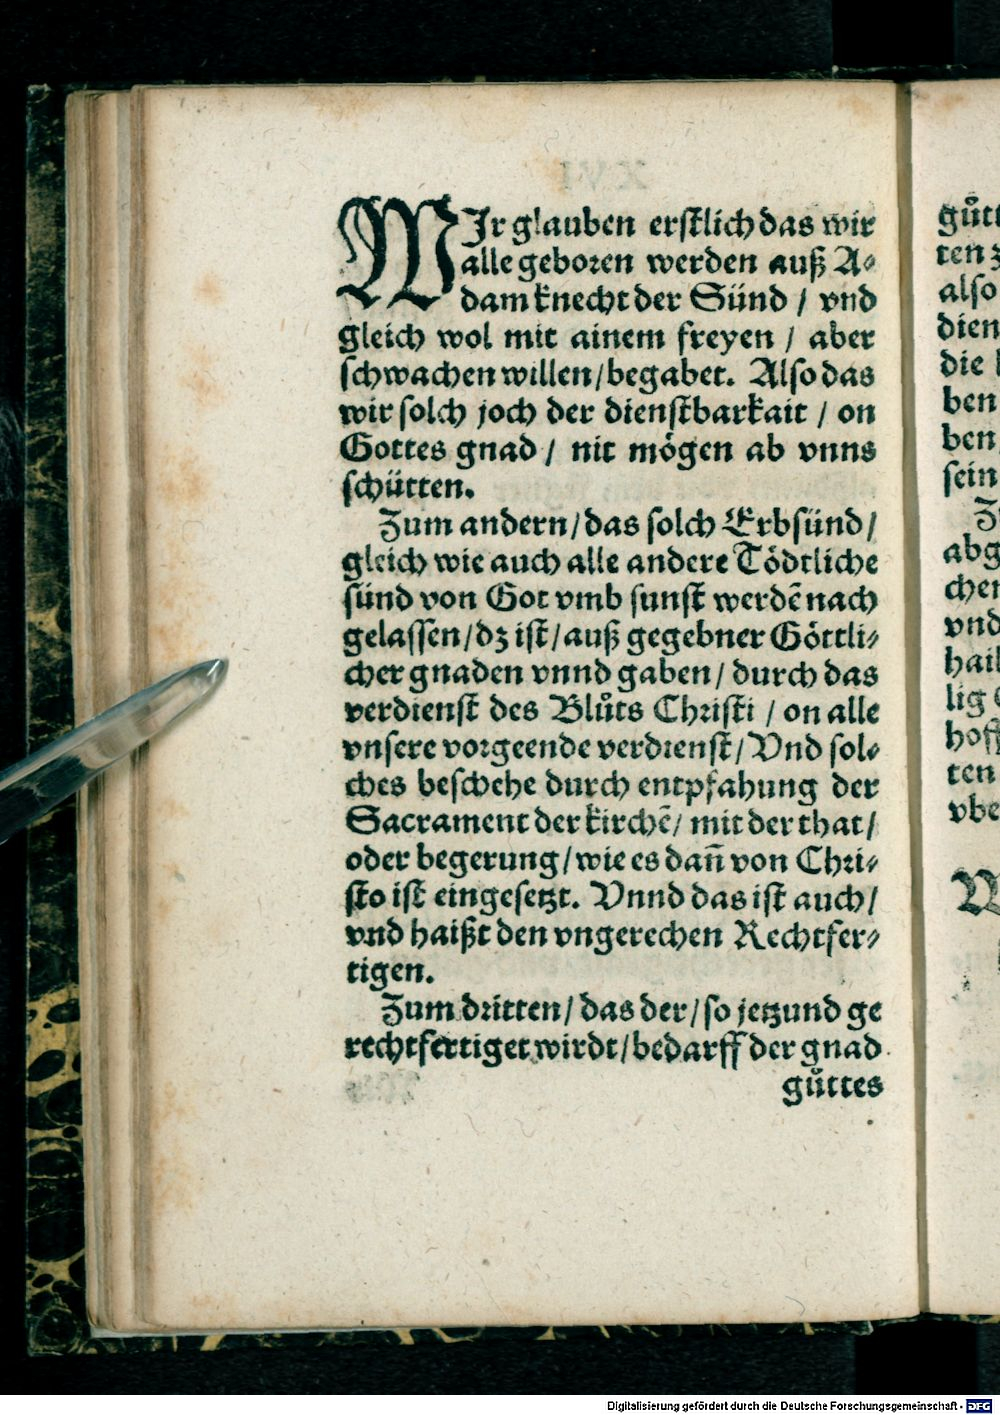 WJr glauben erstlich das wir
alle geboren werden auß A⸗
dam knecht der Sünd / vnd
gleich wol mit ainem freyen / aber
schwachen willen / begabet. Also das
wir solch joch der dienstbarkait / on
Gottes gnad / nit mögen ab vnns
schütten.
Zum andern / das solch Erbsünd /
gleich wie auch alle andere Tödtliche
sünd von Got vmb sunst werdē nach
gelassen / dz ist / auß gegebner Göttli⸗
cher gnaden vnnd gaben / durch das
verdienst des Blůts Christi / on alle
vnsere vorgeende verdienst / Vnd sol⸗
ches beschehe durch entpfahung der
Sacrament der kirchē / mit der that /
oder begerung / wie es dañ von Chri⸗
sto ist eingesetzt. Vnnd das ist auch /
vnd haißt den vngerechen Rechtfer⸗
tigen.
Zum dritten / das der / so jetzund ge
rechtfertiget wirdt / bedarff der gnad
gůttes
ten
also
dien
die
ben
ben
sein
abg
chen
vnd
hail
lig
hoff
ten
vbe
W
Digitalisierung gefördert durch die Deutsche Forschungsgemeinschaft - DFG